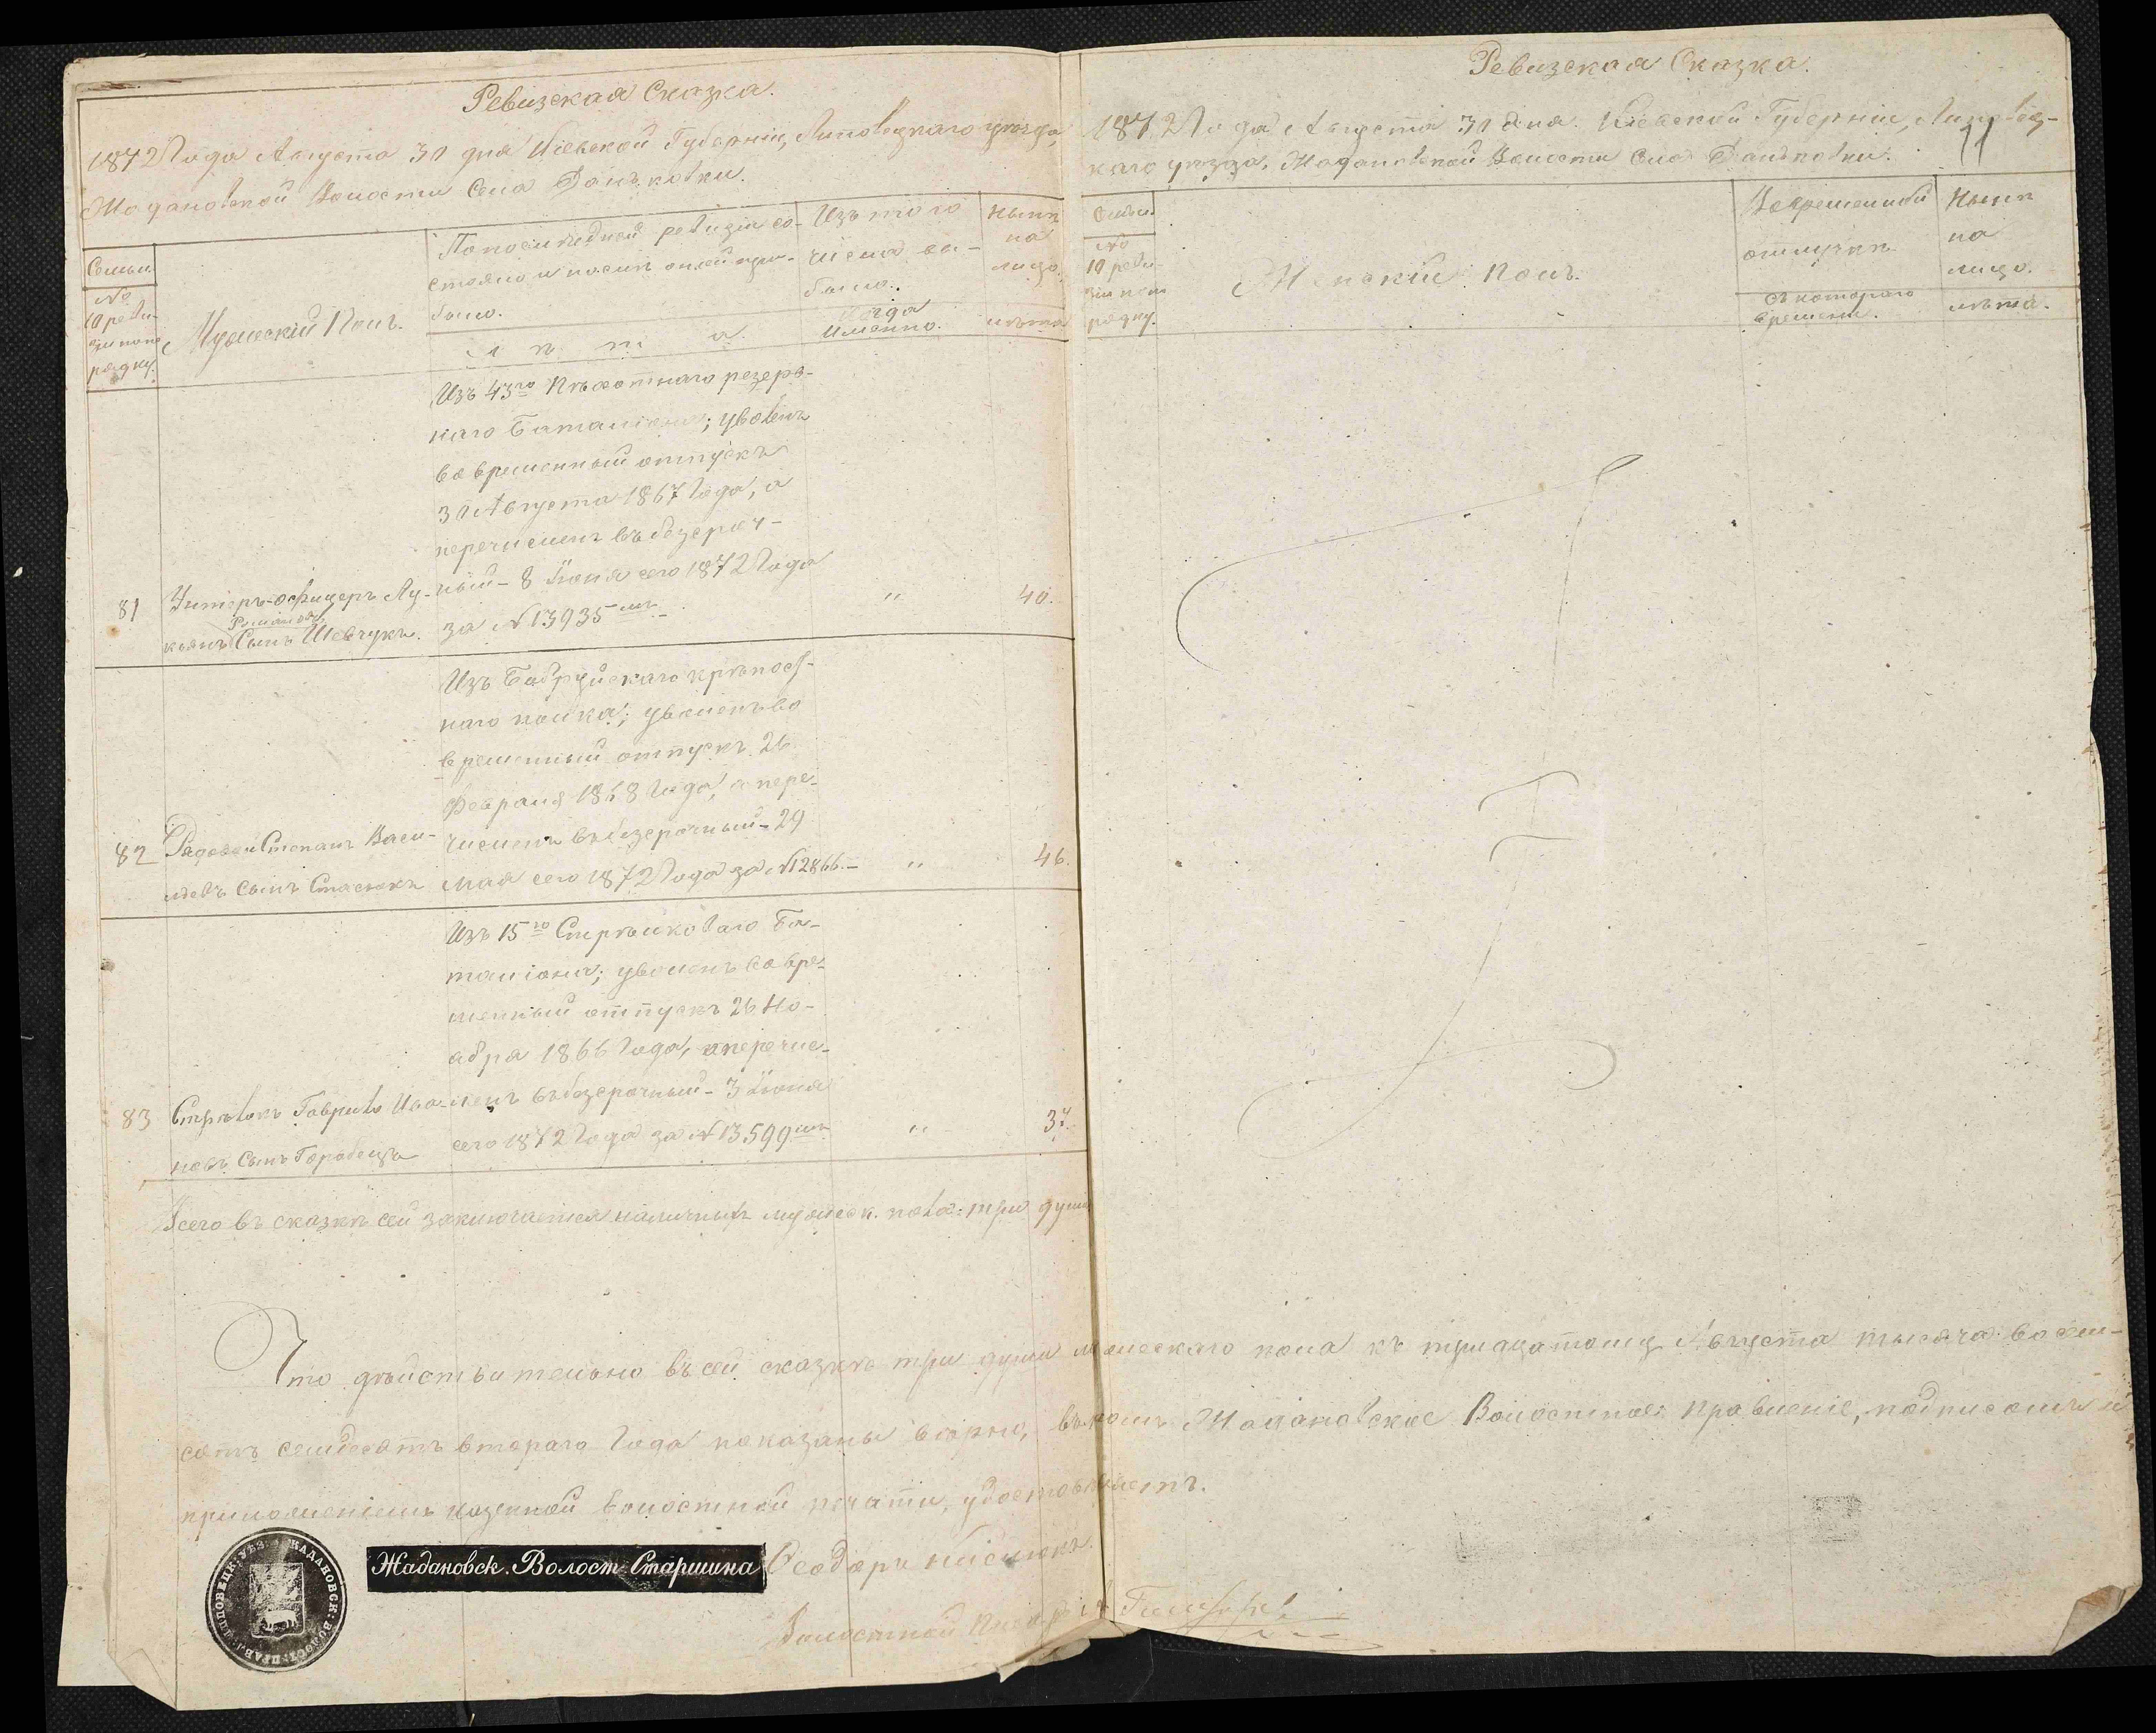 Ревизская Сказка.
1872 Года Августа 31 дня Кіевской Губерніи, Липовецкаго уѣзда,
Жадановской Волости Села Даньковки.
Семьи.
№
10 реви-
зіи по по-
рядку.
Мужескій Полъ.
По послѣдней ревизіи со-
стояло и послѣ оной при-
было.
Лѣта
Изъ того
числа вы-
было.
Когда
именно.
Нынѣ
на
лицо.
лѣта
81
Унтеръ-офицеръ Лу-
Романовъ
кьянъ Сынъ Шевчукъ.
Изъ 43го Пѣхотнаго резерв-
наго Баталіона; уволенъ
во временный отпускъ
31 Августа 1867 Года, а
перечисленъ въ безсроч-
ный - 8 Іюня сего 1872 Года
за №13935мъ
"
40.
82
Рядовой Степанъ Васи-
льевъ Сынъ Стасюкъ
Изъ Бобруйскаго крѣпост-
наго полка; уволенъ во
временный отпускъ 26
Февраля 1868 Года, а пере-
численъ въ безсрочный - 29
Мая сего 1872 Года за №12866. -
"
46.
83
Стрѣлокъ Гаврило Ива-
новъ Сынъ Горобецъ
Изъ 15го Стрѣлковаго Ба-
таліона; уволенъ во вре-
менный отпускъ 26 Но-
ября 1866 Года, а перечис-
ленъ въ безсрочный - 3 Іюня
сего 1872 Года за №13599мъ
"
37.
Всего въ сказкѣ сей заключается наличныхъ мужеск. пола: три души
Ревизская Сказка.
1872 Года Августа 31 дня. Кіевской Губерніи, Липовец-
каго уѣзда, Жадановской Волости Села Даньковки.
11
Семьи.
№
10 реви-
зіи по по-
рядку.
Женскій Полъ.
Во временной
отлучкѣ
Съ котораго
времени.
Нынѣ
на
лицо.
лѣта.
Что дѣйствительно въ сей сказкѣ три души мужескаго пола къ тридцатому Августа тысяча восем-
сотъ семдесятъ втораго Года показаны вѣрно, въ томъ Жадановское Волостное Правленіе, подписомъ и
приложеніемъ казенной Волостной печати, удостовѣряетъ.
ЖАДАНОВСК: ВОЛОСТ: ПРАВЛ: ЛИПОВЕЦК: УѢЗ:
Жадановск. Волост. Старшина Ѳеодоръ
Волостной Писарь